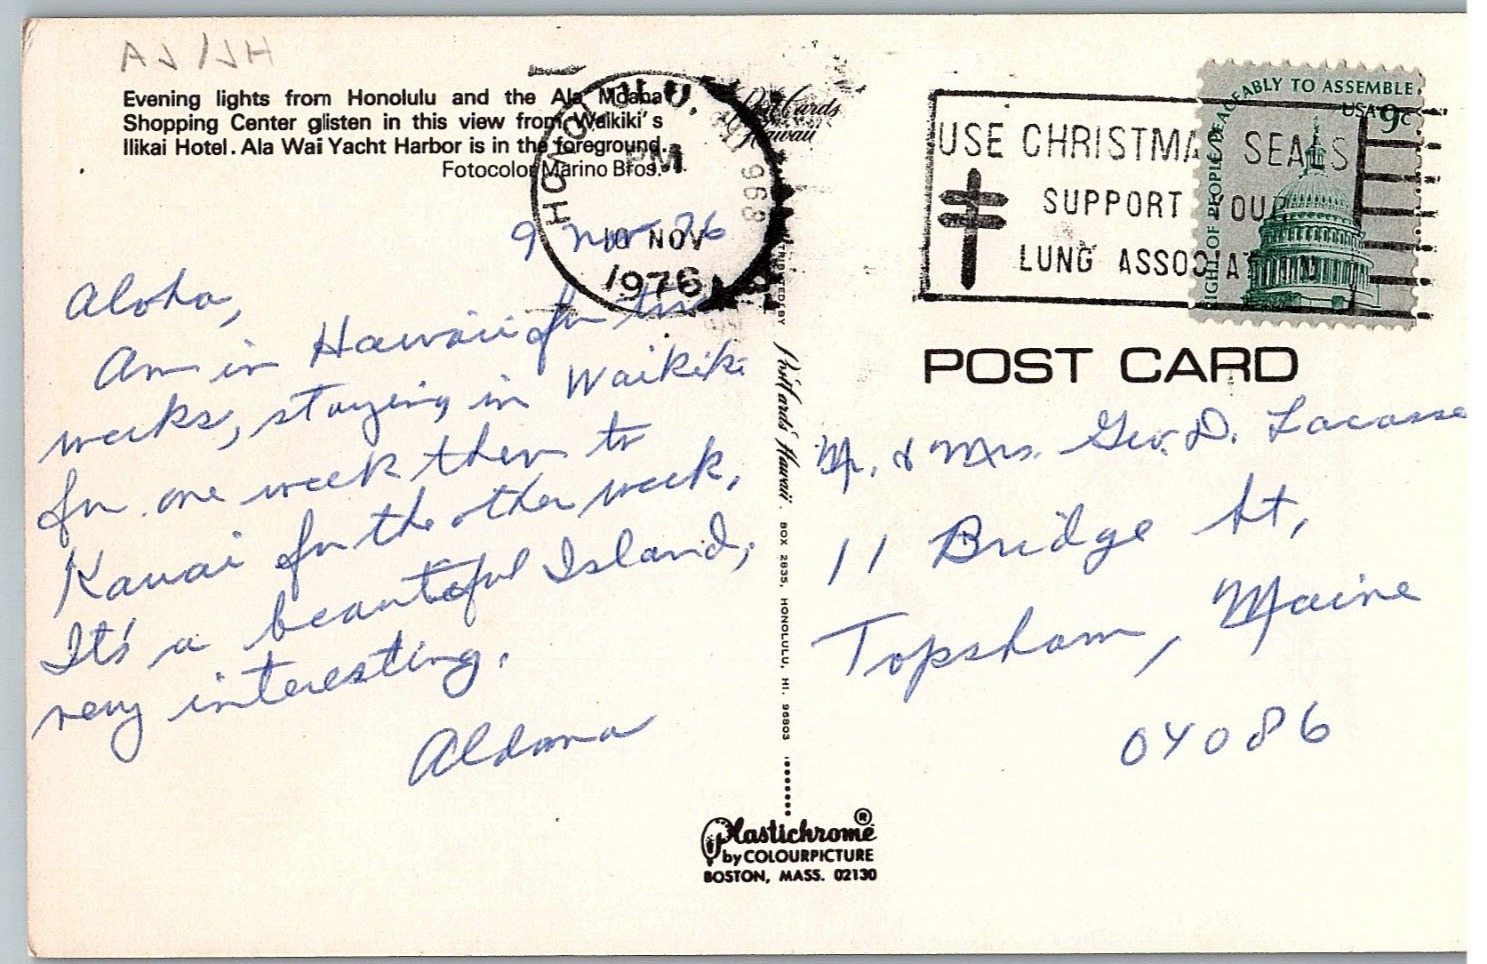 AJ/JH
Evening lights from Honolulu and the Ala Moana
Shopping Center glisten in this view from Waikiki's
Ilikai Hotel. Ala Wai Yacht Harbor is in the foreground.
Fotocolor Marino Bros.
HONOLULU, HI 968
PM
10 NOV
1976
Post Cards
Hawaii
USE CHRISTMAS SEALS
SUPPORT YOUR
LUNG ASSOCIATION
RIGHT OF PEOPLE PEACEABLY TO ASSEMBLE
USA 9c
9 Nov 76
Aloha,
Am in Hawaii for two
weeks, staying in Waikiki
for one week then to
Kauai for the other week.
It's a beautiful Island,
very interesting.
Aldana
DISTRIBUTED BY Post Cards Hawaii. BOX 2835, HONOLULU, HI. 96803
POST CARD
Mr. & Mrs. Geo. D. Lacasse
11 Bridge St,
Topsham, Maine
04086
Plastichrome®
by COLOURPICTURE
BOSTON, MASS. 02130